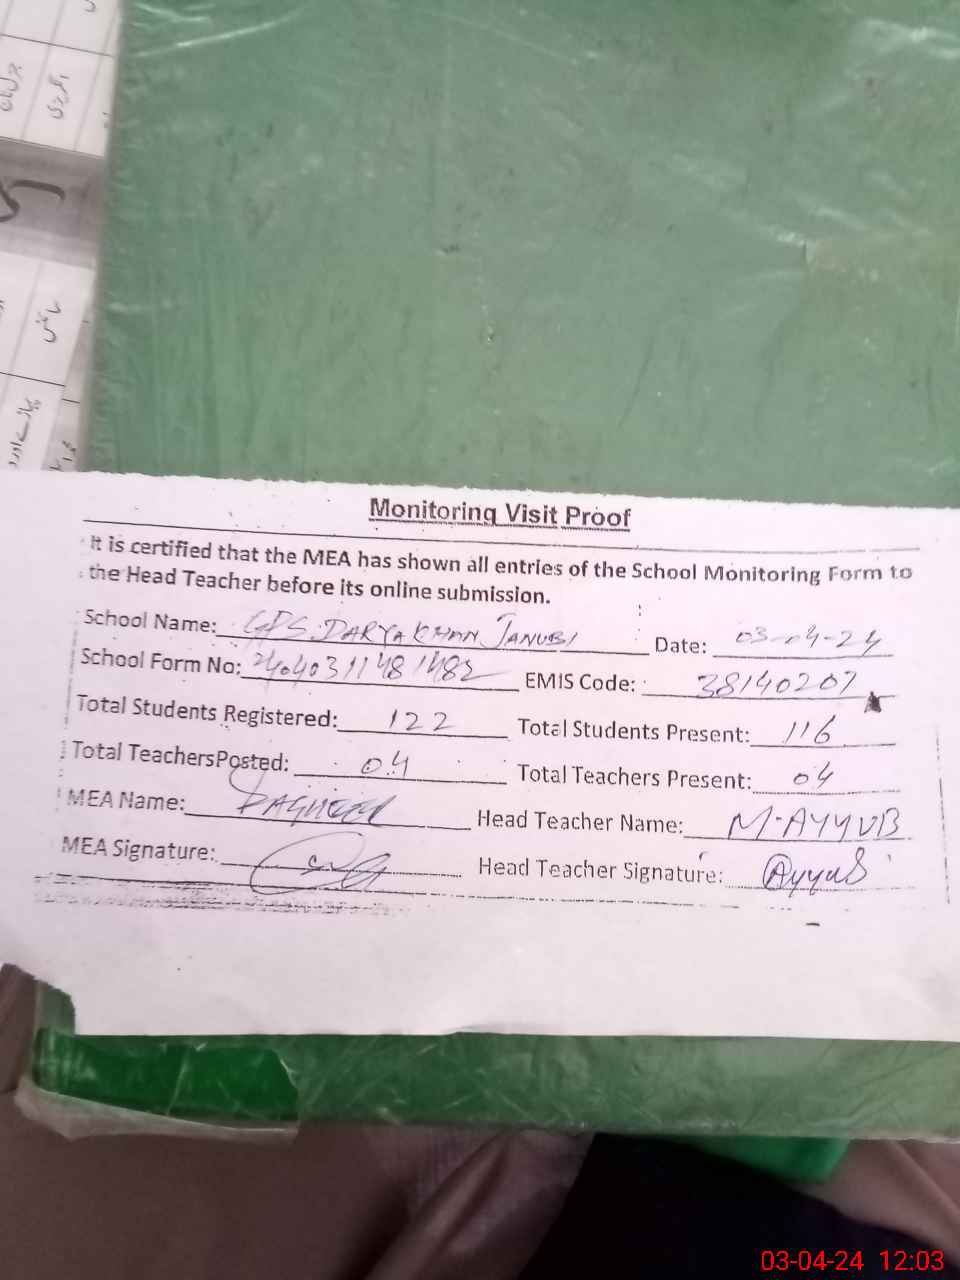 Monitoring Visit Proof
It is certified that the MEA has shown all entries of the School Monitoring Form to
the Head Teacher before its online submission.
School Name: GPS DARYA KHAN JANUBI Date: 03-04-24
School Form No: 24040311481482 EMIS Code: 38140207
Total Students Registered: 122 Total Students Present: 116
Total TeachersPosted: 04 Total Teachers Present: 04
MEA Name: Head Teacher Name: M-AYYUB
MEA Signature: Head Teacher Signature: Ayyub
03-04-24 12:03